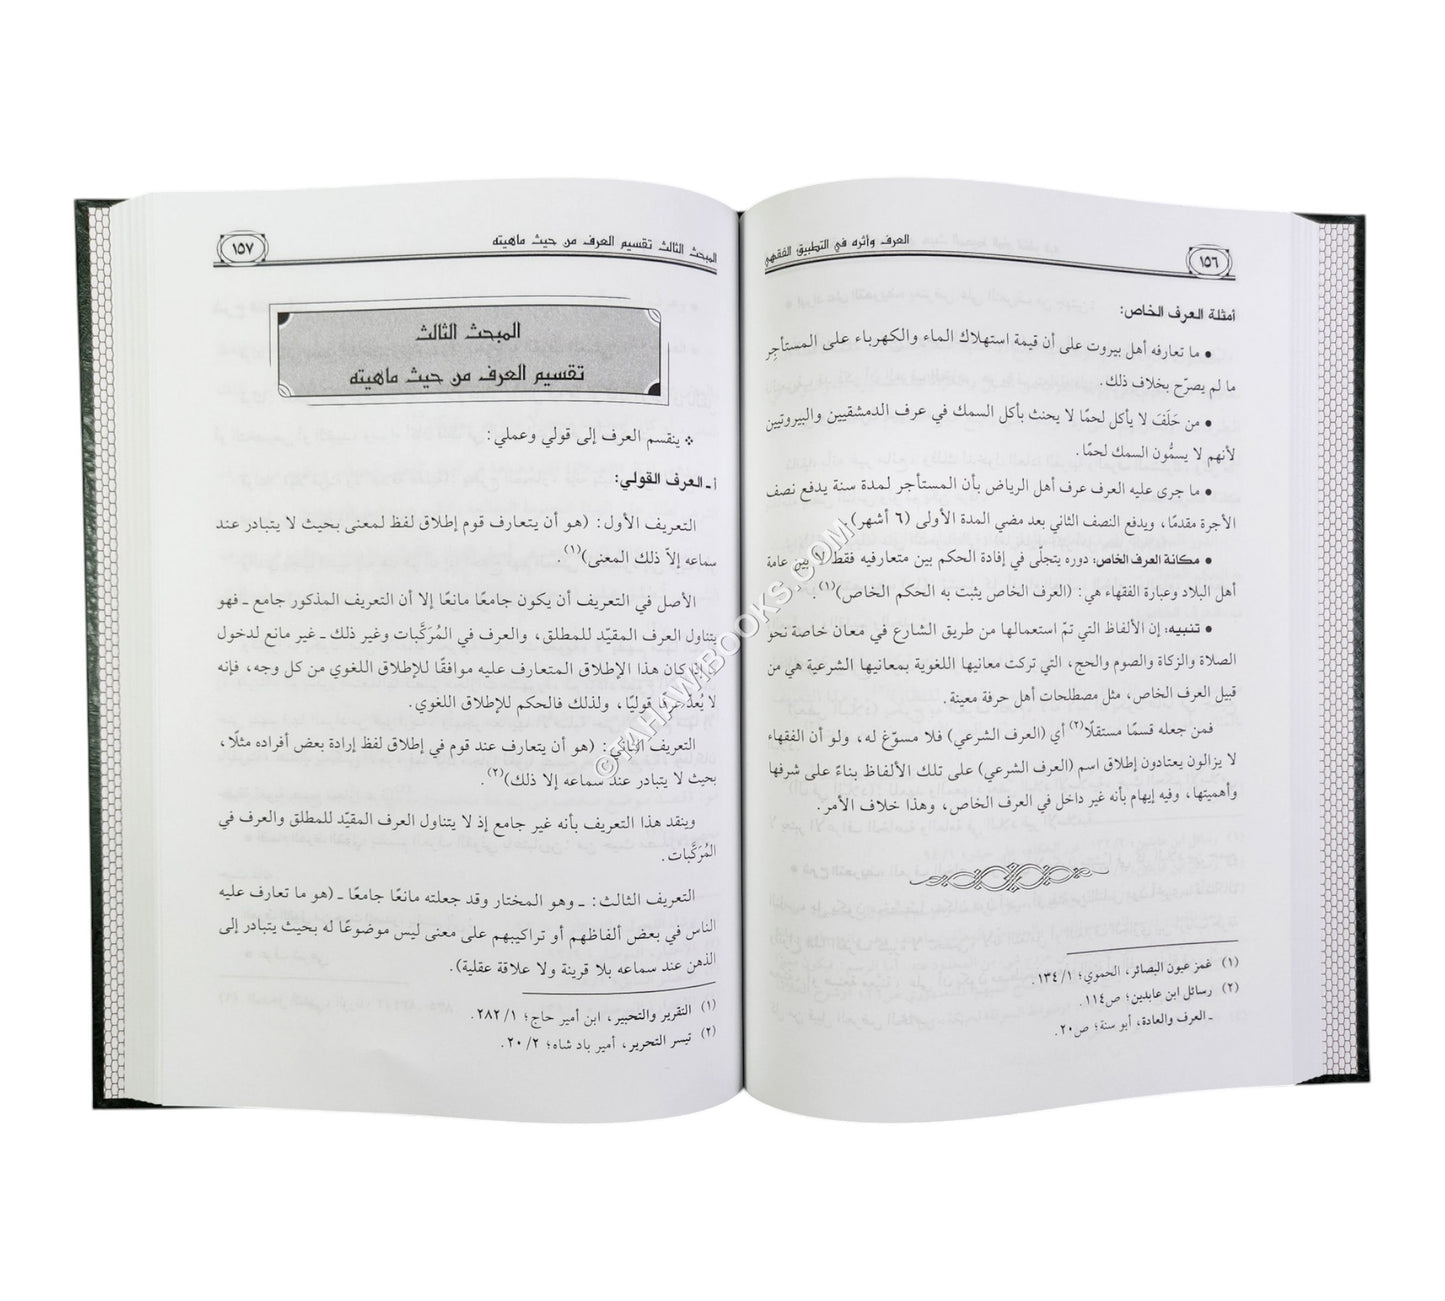 العرف وأثره في التطبيق الفقهي
١٥٦
أمثلة العرف الخاص:
• ما تعارفه أهل بيروت على أن قيمة استهلاك الماء والكهرباء على المستأجِر
ما لم يصرّح بخلاف ذلك.
• من حَلَفَ لا يأكل لحمًا لا يحنث بأكل السمك في عرف الدمشقيين والبيروتيين
لأنهم لا يسمُّون السمك لحمًا.
• ما جرى عليه العرف عرف أهل الرياض بأن المستأجر لمدة سنة يدفع نصف
الأجرة مقدمًا، ويدفع النصف الثاني بعد مضي المدة الأولى (٦ أشهر).
• مكانة العرف الخاص: دوره يتجلّى في إفادة الحكم بين متعارفيه فقط لا بين عامة
أهل البلاد وعبارة الفقهاء هي: (العرف الخاص يثبت به الحكم الخاص)(١).
• تنبيه: إن الألفاظ التي تمّ استعمالها من طريق الشارع في معان خاصة نحو
الصلاة والزكاة والصوم والحج، التي تركت معانيها اللغوية بمعانيها الشرعية هي من
قبيل العرف الخاص، مثل مصطلحات أهل حرفة معينة.
فمن جعله قسمًا مستقلًا(٢) أي (العرف الشرعي) فلا مسوّغ له، ولو أن الفقهاء
لا يزالون يعتادون إطلاق اسم (العرف الشرعي) على تلك الألفاظ بناءً على شرفها
وأهميتها، وفيه إيهام بأنه غير داخل في العرف الخاص، وهذا خلاف الأمر.
(١) غمز عيون البصائر، الحموي؛ ١/ ١٣٤.
(٢) رسائل ابن عابدين؛ ص١١٤.
ـ العرف والعادة، أبو سنة؛ ص٢٠.
المبحث الثالث تقسيم العرف من حيث ماهيته
١٥٧
المبحث الثالث
تقسيم العرف من حيث ماهيته
❖ ينقسم العرف إلى قولي وعملي:
أ ـ العرف القولي:
التعريف الأول: (هو أن يتعارف قوم إطلاق لفظ لمعنى بحيث لا يتبادر عند
سماعه إلاّ ذلك المعنى)(١).
الأصل في التعريف أن يكون جامعًا مانعًا إلا أن التعريف المذكور جامع ـ فهو
يتناول العرف المقيّد للمطلق، والعرف في المُرَكَّبات وغير ذلك ـ غير مانع لدخول
ما إذا كان هذا الإطلاق المتعارف عليه موافقًا للإطلاق اللغوي من كل وجه، فإنه
لا يُعدّ عرفًا قوليًا، ولذلك فالحكم للإطلاق اللغوي.
التعريف الثاني: (هو أن يتعارف عند قوم في إطلاق لفظ إرادة بعض أفراده مثلًا،
بحيث لا يتبادر عند سماعه إلا ذلك)(٢).
وينقد هذا التعريف بأنه غير جامع إذ لا يتناول العرف المقيّد للمطلق والعرف في
المُرَكَّبات.
التعريف الثالث: ـ وهو المختار وقد جعلته مانعًا جامعًا ـ (هو ما تعارف عليه
الناس في بعض ألفاظهم أو تراكيبهم على معنى ليس موضوعًا له بحيث يتبادر إلى
الذهن عند سماعه بلا قرينة ولا علاقة عقلية).
(١) التقرير والتحبير، ابن أمير حاج؛ ١/ ٢٨٢.
(٢) تيسر التحرير، أمير باد شاه؛ ٢/ ٢٠.
© TAHAWIBOOKS.COM